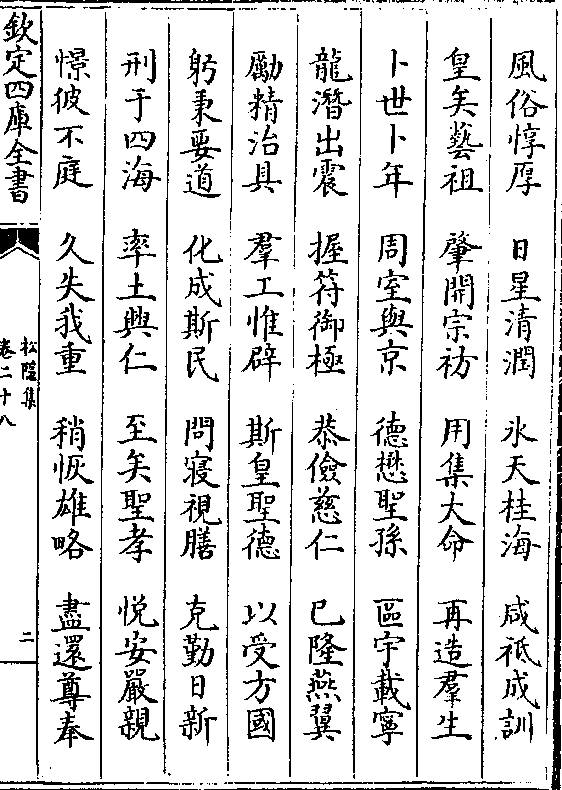 風俗惇厚 日星清潤 氷天桂海 咸祗成訓
皇矣藝祖 肇開宗祊 用集大命 再造羣生
卜世卜年 周室與京 德懋聖孫 區宇載寧
龍潛出震 握符御極 恭儉慈仁 已隆燕翼
勵精治具 羣工惟辟 斯皇聖德 以受方國
躬秉要道 化成斯民 問寢視膳 克勤日新
刑于四海 率土興仁 至矣聖孝 悦安嚴親
憬彼不庭 久失我重 稍恢雄略 盡還尊奉
欽定四庫全書
松隠集
卷二十八
二